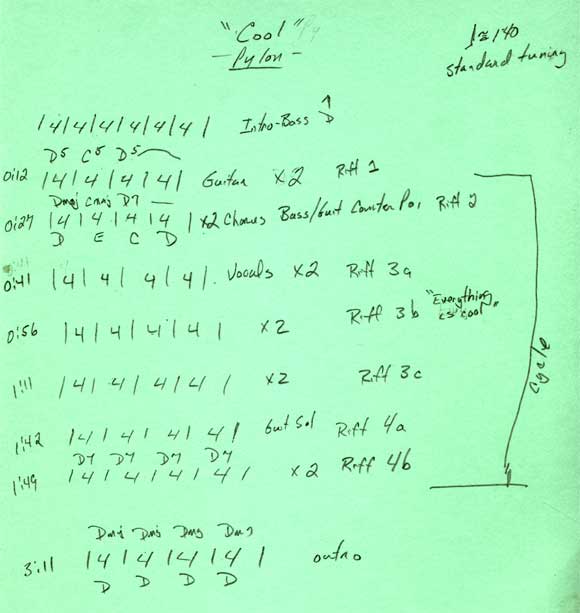 "Cool"
- Pylon -
♩≈140
standard tuning
|4|4|4|4|4|4| Intro-Bass D
D5 C5 D5
0:12 |4|4|4|4| Guitar x2 Riff 1
Dmaj Cmaj D7 —
0:27 |4|4|4|4|x2 Chorus Bass/Guit Counter Riff 2
D E C D
0:41 |4|4|4|4| Vocals x2 Riff 3a
0:56 |4|4|4|4| x2 Riff 3b "Everything is cool"
1:11 |4|4|4|4| x2 Riff 3c
Cycle
1:42 |4|4|4|4| Guit Sol Riff 4a
D7 D7 D7 D7
1:49 |4|4|4|4| x2 Riff 4b
Dmaj Dmaj Dmaj Dm7
3:11 |4|4|4|4| outro
D D D D